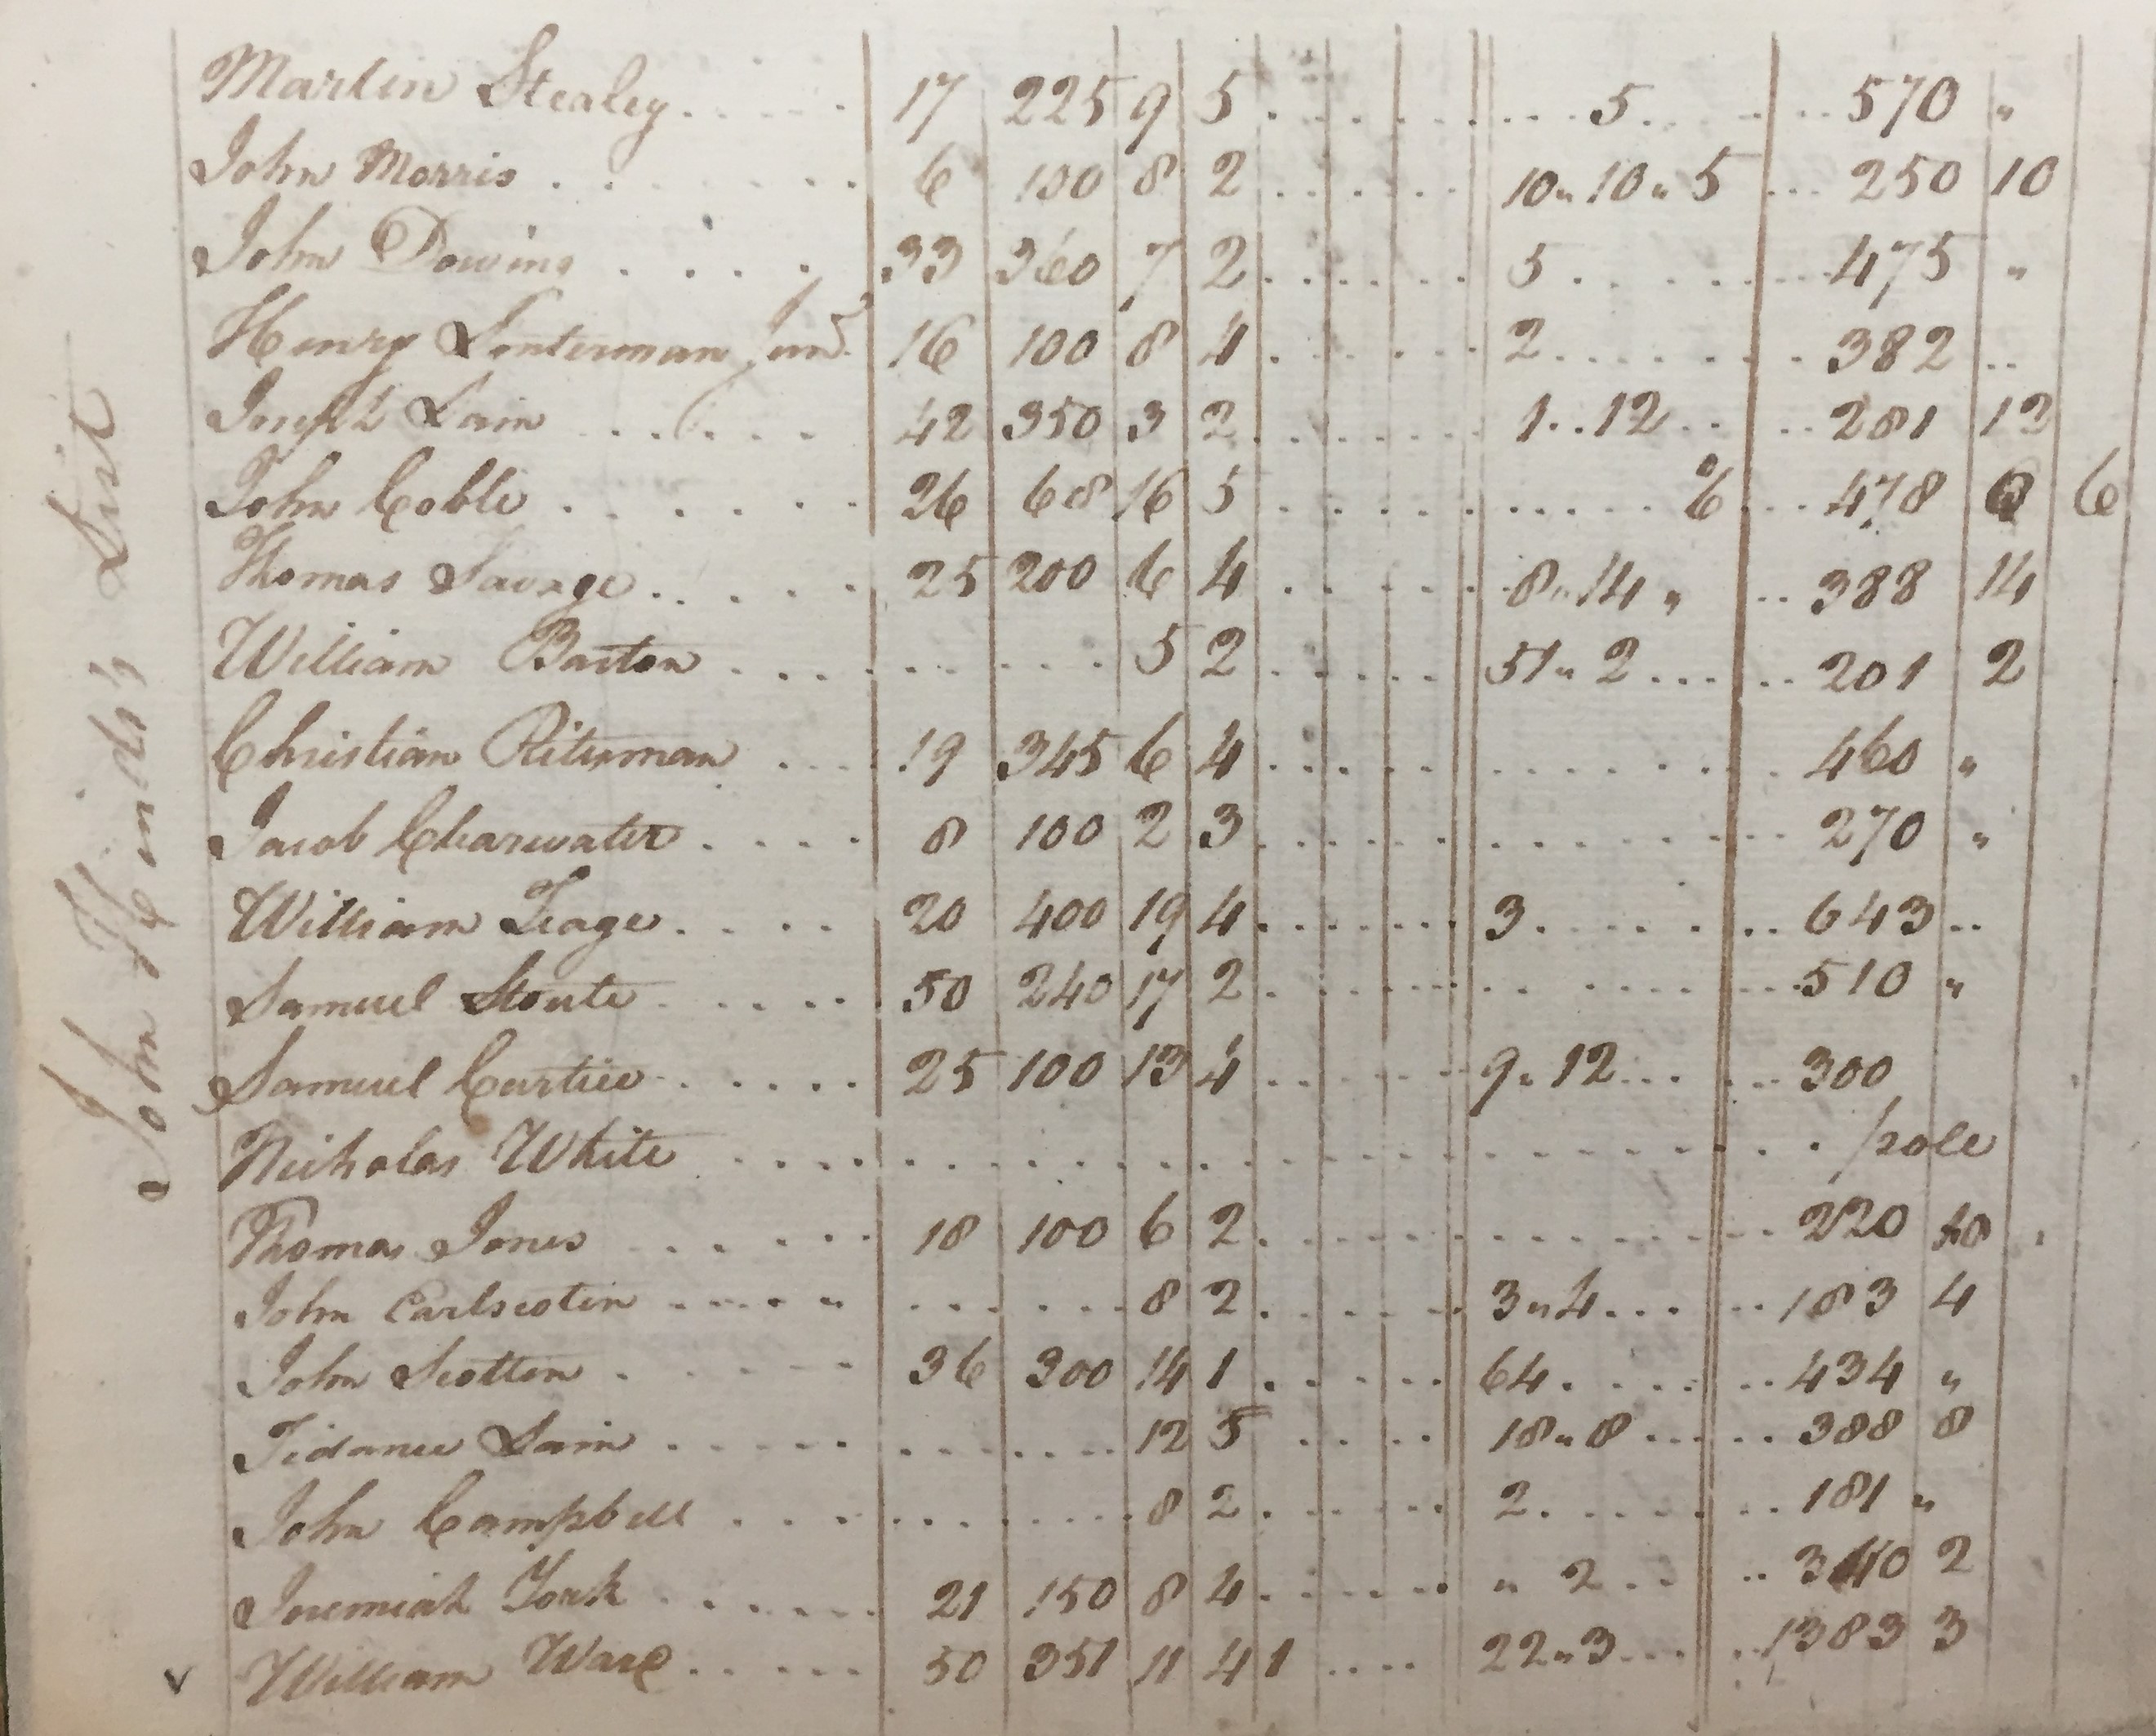 John Hinds's List
Martin Stealey 17 225 9 5 5 570 "
John Morris 6 100 8 2 10 " 10 " 5 250 10
John Dowing 33 360 7 2 5 475 "
Henry Linterman Junr 16 100 8 4 2 382
Joseph Lain 42 350 3 2 1 12 281 12
John Coble 26 68 16 5 6 478 6
Thomas Savage 25 200 6 4 8 " 14 " 388 14
William Barton 5 2 51 " 2 201 2
Christian Riterman 19 345 6 4 460 "
Jacob Clearwater 8 100 2 3 270 "
William Teage 20 400 19 4 3 643
Samuel Stoute 50 240 17 2 510 "
Samuel Curtice 25 100 13 4 9 " 12 300
Nicholas White pole
Thomas Jones 18 100 6 2 220
John Carlscotin 8 2 3 " 4 183 4
John Scotten 36 300 14 1 64 434 "
Tidance Lain 12 5 18 " 8 388 8
John Campbell 8 2 2 181 "
Jeremiah York 21 150 8 4 " 2 340 2
v William Ware 50 351 11 4 1 22 " 3 1383 3